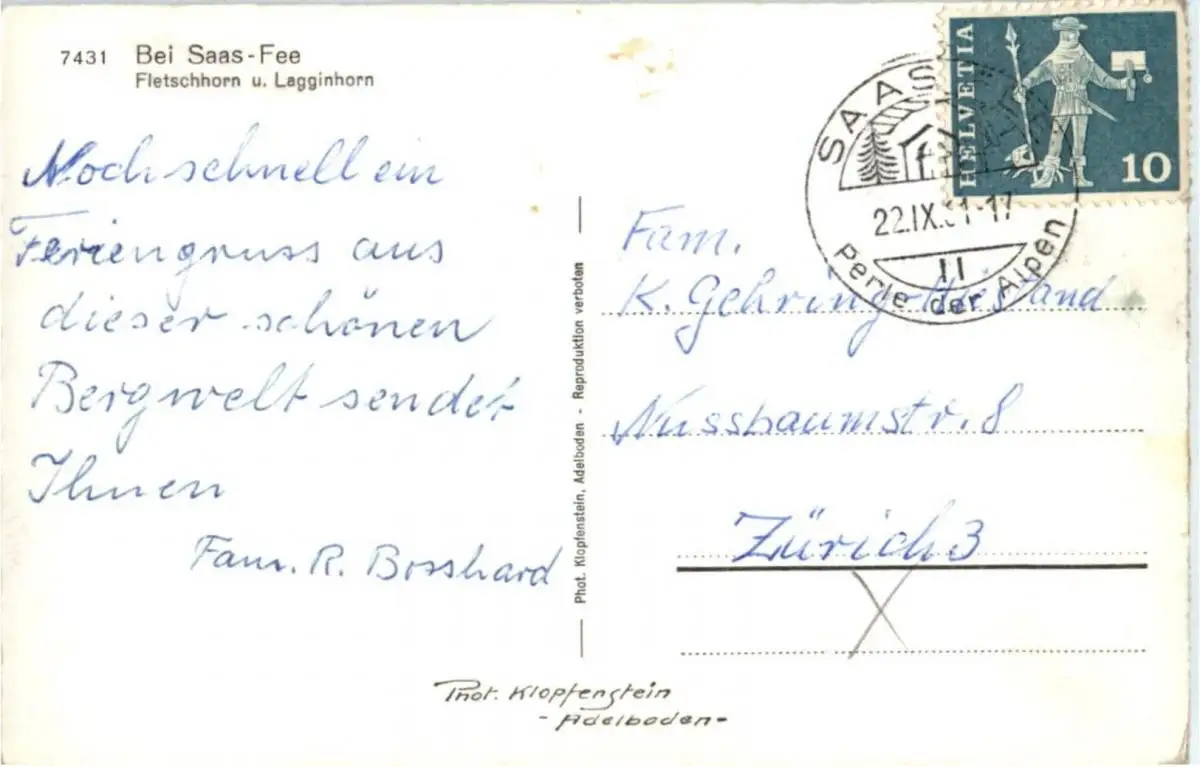 7431 Bei Saas-Fee
Fletschhorn u. Lagginhorn
Noch schnell ein
Feriengruss aus
dieser schönen
Bergwelt sendet
Ihnen
Fam. R. Bosshard
Phot. Klopfenstein, Adelboden - Reproduktion verboten
SAAS
22.IX.61-17
11
Perle der Alpen
HELVETIA
10
Fam.
K. Gehring-Hiestand
Nussbaumstr. 8
Zürich 3
Phot. Klopfenstein
- Adelboden -